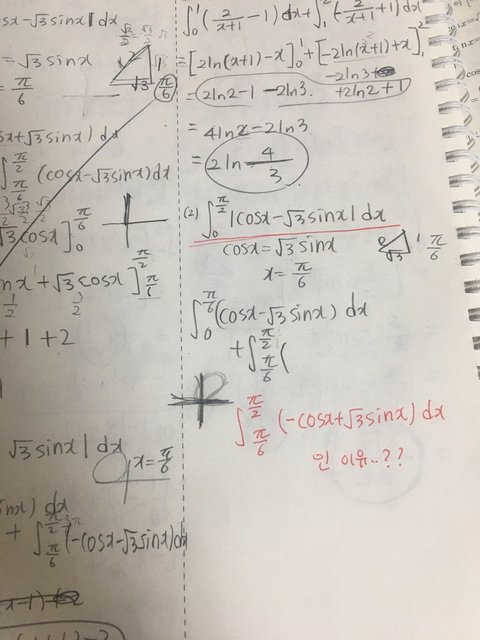 sx-√3sinx|dx
=√3sinx
π/6
√3
1
π/6
sx+√3sinx)dx
∫_{π/6}^{π/2}(cosx-√3sinx)dx
√3cosx]_0^{π/6}
nx+√3cosx]_{π/6}^{π/2}
1/2
+1+2
√3sinx|dx
x=π/6
sinx)dx
+∫_{π/6}^{π/2}(-cosx-√3sinx)dx
∫_0^1(2/(x+1)-1)dx+∫_1^2(-2/(x+1)+1)dx
=[2ln(x+1)-x]_0^1+[-2ln(x+1)+x]_1^2
2ln2-1-2ln3+2ln2+1
=4ln2-2ln3
=2ln 4/3
(2) ∫_0^{π/2}|cosx-√3sinx|dx
cosx=√3sinx
2 1 √3 π/6
x=π/6
∫_0^{π/6}(cosx-√3sinx)dx
+∫_{π/6}^{π/2}(
∫_{π/6}^{π/2}(-cosx+√3sinx)dx
인 이유..??